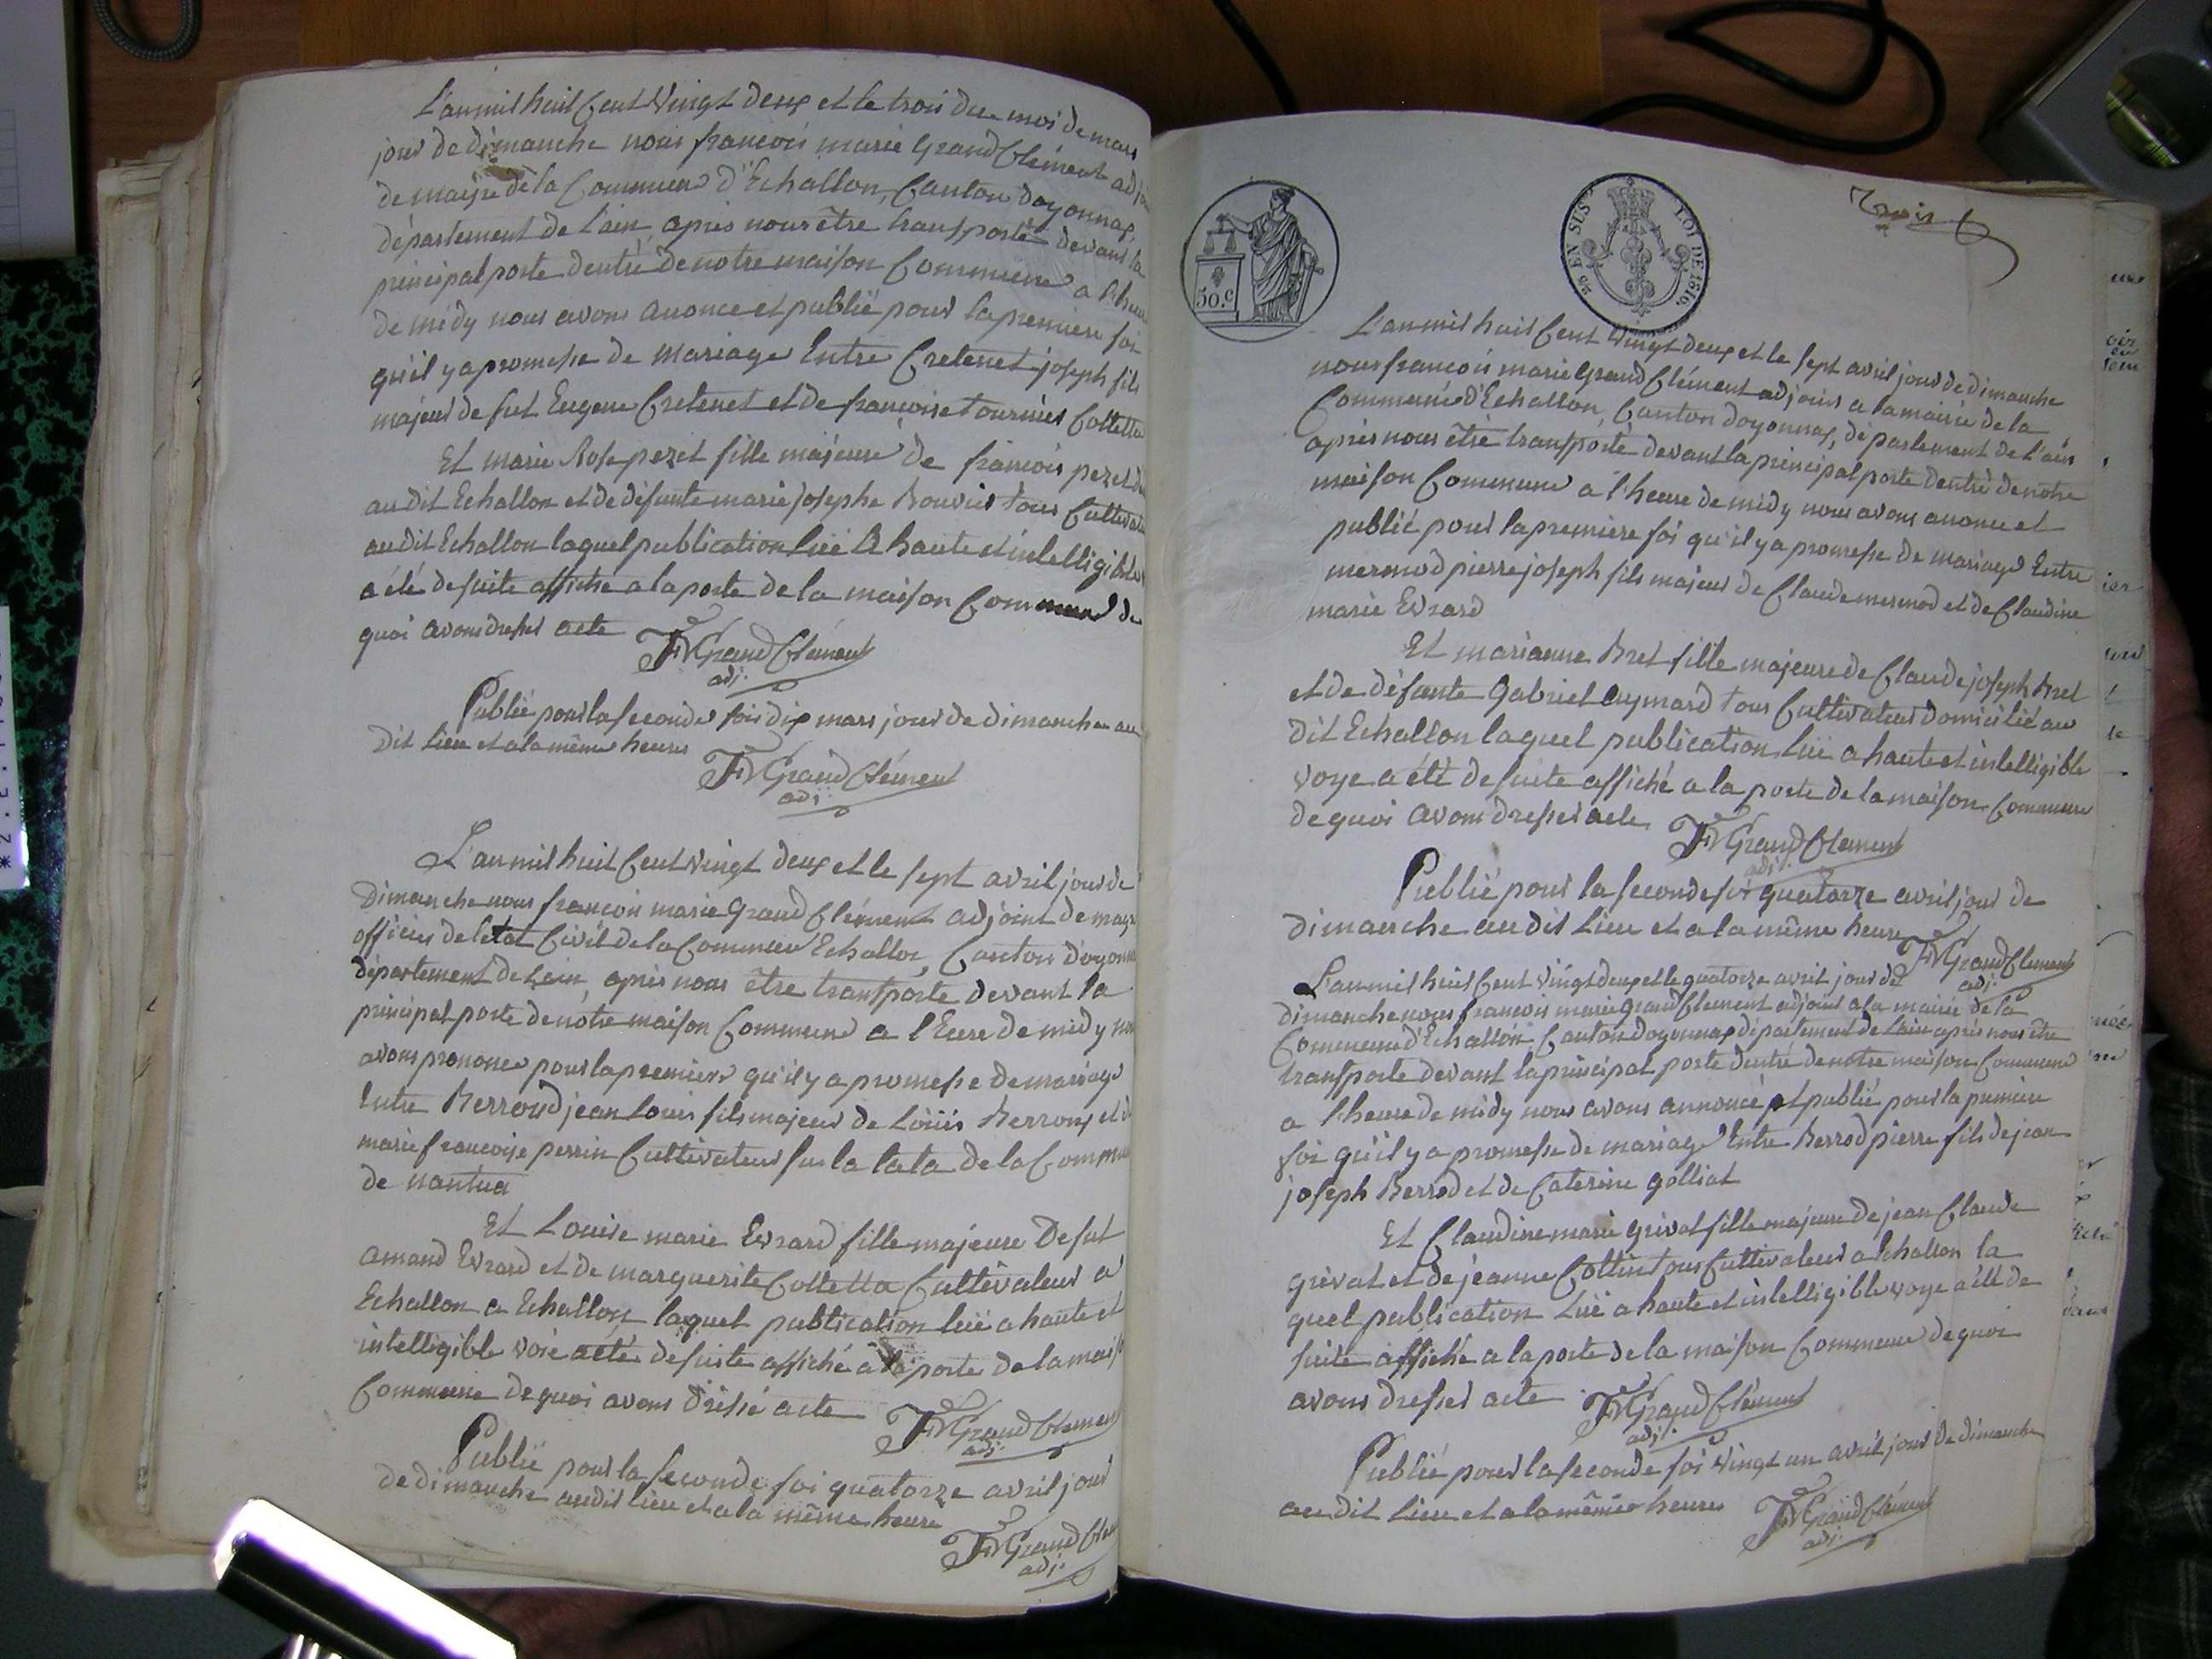 L'an mil huit Cent Vingt deux et le trois du moi de mars
jour de dimanche nous francois marie Grand Clément adj
de mayre de la Commune d'Echallon, Canton doyonnax,
département de L'ain, après nous être transporté devant la
principal porte dentré de notre maison Commune a lheure
de midy nous avons anonce et publié pour la premiere foi
qu'il y a promesse de mariage Entre Cretenet joseph fils
majeur de fut Eugene Cretenet et de francoise tournier Colletta
Et marie Rose pezet fille majeure de francois pezet
au dit Echallon et de défunte marie josephe Bouvier tous Cultivat
audit Echallon laquel publication lüe a haute et intelligible
a été de suite affiche a la porte de la maison Commune de
quoi avons dresser acte FM Grand Clément
adj.
Publié pour la seconde fois dix mars jour de dimanche au
dit Lieu et a la même heure
FM Grand Clément
adj.
L'an mil huit Cent vingt deux et le sept avril jour de
Dimanche nous francois marie Grand Clément adjoint de mayre
officier de letat Civil de la Commune Echallon, Canton d'oyonna
département de Lain, après nous être transporte devant la
principal porte de notre maison Commune a l'Eure de midy nou
avons prononce pour la premiere qu'il y a promesse de mariage
Entre Berroud jean Louis fils majeur de Löüis Berroux et d
marie francoise perrin Cultivateur sur la lata de la Commu
de nantua
Et Louise marie Evrard fille majeure De fut
amand Evrard et de marguerite Colletta Cultivateur a
Echallon a Echallon, laquel publication lüe a haute et
intelligible voie a été de suite affiché à la porte de la mais
Commune de quoi avons dressé acte FM Grand Clement
adj.
Publié pour la seconde foi quatorze avril jour
de dimanche audit lieu et a la même heure
FM Grand Cle
adj.
50.c
25c EN SUS LOI DE 1816.
Trois
L'an mil huit Cent Vingt deux et le sept avril jour de dimanche
nous francois marie Grand Clément adjoint a la mairie de la
Commune d'Echallon, Canton doyonnax, département de L'ain
après nous être transporté devant la principal porte dentré de notre
maison Commune a l'heure de midy nous avons anonce et
publié pour la premiere foi qu'il y a promesse de mariage Entre
mermod pierre joseph fils majeur de Claude mermod et de Claudine
marie Evrard
Et marianne Bret fille majeure de Claude joseph Bret
et de défunte Gabriel Aymard tous Cultivateur domicilié au
dit Echallon laquel publication lüe a haute et intelligible
voye a été de suite affiché a la porte de la maison Commune
de quoi avons dresser acte FM Grand Clement
adj.
Publié pour la seconde foi quatorze avril jour de
dimanche au dit Lieu et a la même heure FM Grand Clement
adj.
L'an mil huit Cent Vingt deux et le quatorze avril jour de
dimanche nous francois marie Grand Clement adjoint a la mairie de la
Commune d'Echallon, Canton doyonnax département de Lain après nous être
transporte devant la principal porte dentre de notre maison Commune
a l'heure de midy nous avons annoncé et publié pour la premiere
foi qu'il y a promesse de mariage Entre Berrod pierre fils de jean
joseph Berrod et de Caterine golliat
Et Claudine marie grivat fille majeure de jean Claude
grivat et de jeanne Cottin tous Cultivateur a Echallon la
quel publication lüe a haute et intelligible voye a été de
suite affiché a la porte de la maison Commune de quoi
avons dresser acte FM Grand Clément
adj.
Publié pour la seconde foi vingt un avril jour de dimanche
au dit Lieu et a la même heure FM Grand Clément
adj.